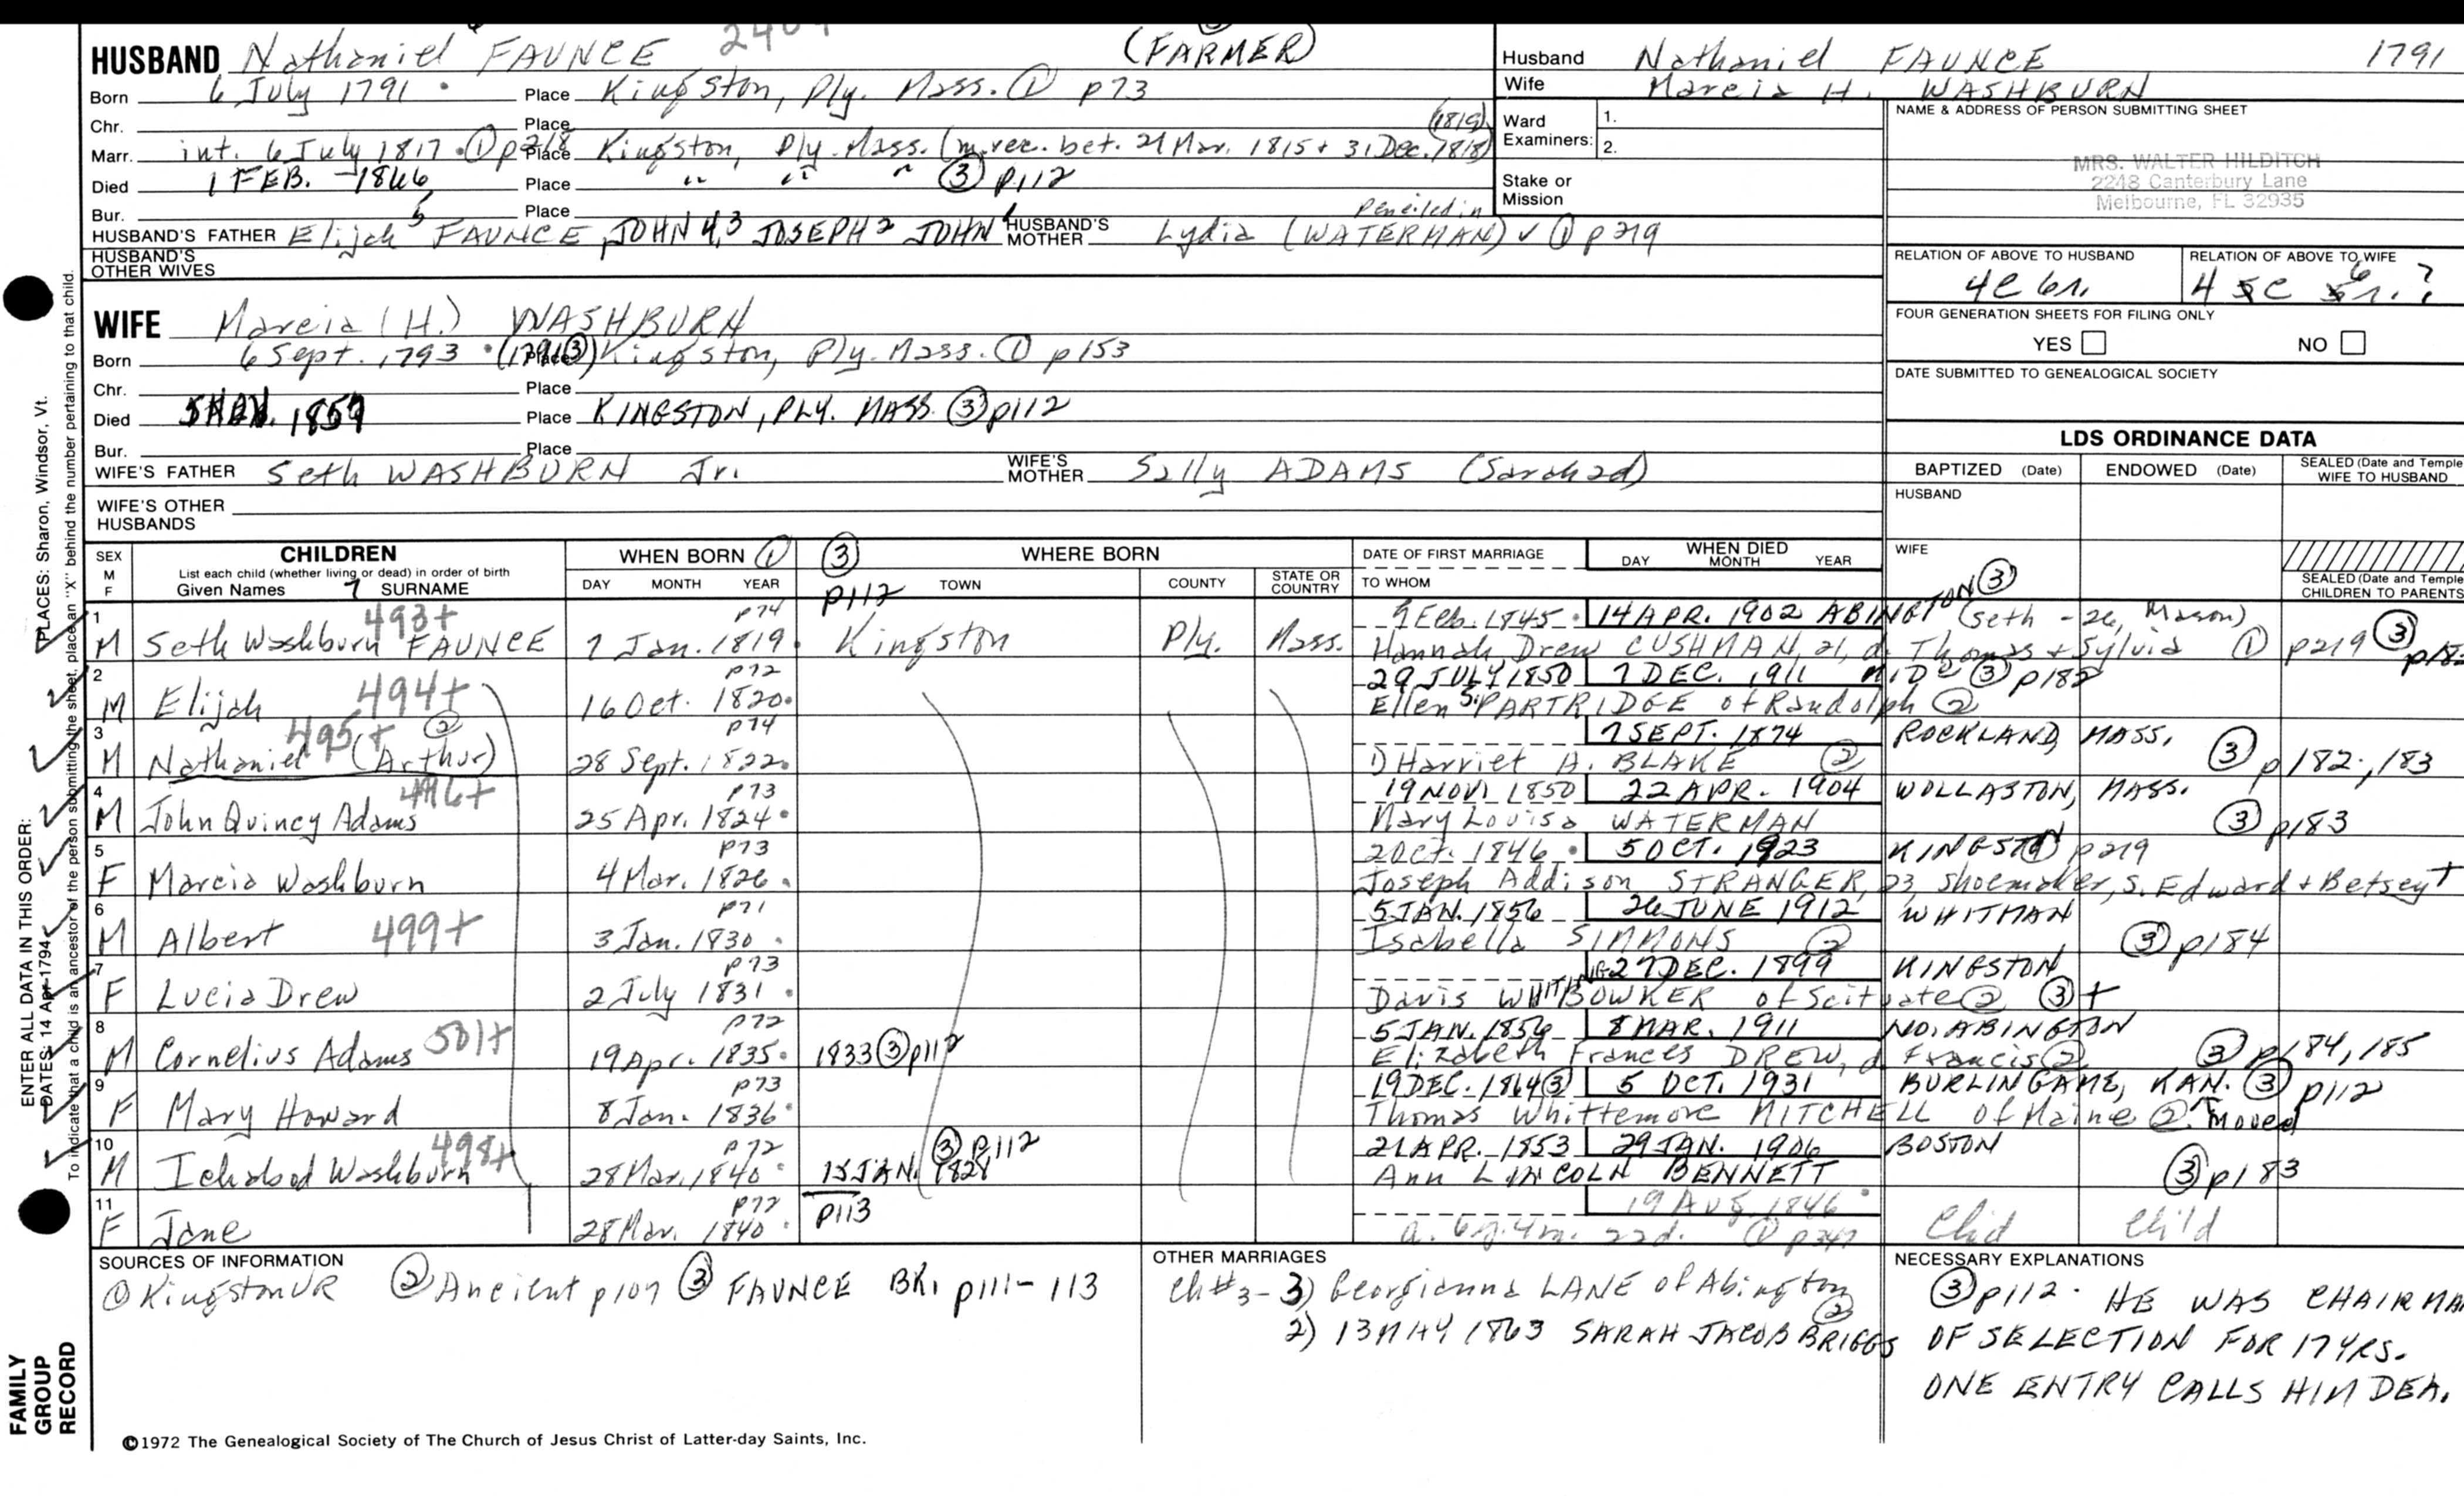 HUSBAND Nathaniel FAUNCE (FARMER)
Born 6 July 1791 Place Kingston, Ply. Mass. ① p73
Chr. Place
Marr. int. 6 July 1817 ① p218 Place Kingston, Ply. Mass. (m. rec. bet. 21 Mar. 1815 + 31 Dec. 1818) (1819)
Died 1 FEB. 1846 Place " " " ③ p112
Bur. Place
HUSBAND'S FATHER Elijah 5 FAUNCE, JOHN 4,3 JOSEPH 2 JOHN 1 HUSBAND'S MOTHER Lydia (WATERMAN) ✓ ① p219
penciled in
HUSBAND'S OTHER WIVES
Husband Nathaniel FAUNCE 1791
Wife Marcia H. WASHBURN
Ward 1.
Examiners: 2.
Stake or Mission
NAME & ADDRESS OF PERSON SUBMITTING SHEET
MRS. WALTER HILDITCH
2248 Canterbury Lane
Melbourne, FL 32935
RELATION OF ABOVE TO HUSBAND RELATION OF ABOVE TO WIFE
4C 6r.
FOUR GENERATION SHEETS FOR FILING ONLY
YES NO
DATE SUBMITTED TO GENEALOGICAL SOCIETY
WIFE Marcia (H.) WASHBURN
Born 6 Sept. 1793 (1791 ③) Place Kingston, Ply. Mass. ① p153
Chr. Place
Died 1859 Place KINGSTON, PLY. MASS. ③ p112
Bur. Place
WIFE'S FATHER Seth WASHBURN Jr. WIFE'S MOTHER Sally ADAMS
WIFE'S OTHER HUSBANDS
LDS ORDINANCE DATA
BAPTIZED (Date) ENDOWED (Date) SEALED (Date and Temple) WIFE TO HUSBAND
HUSBAND
WIFE
SEALED (Date and Temple) CHILDREN TO PARENTS
SEX M F CHILDREN WHEN BORN ① ③ p112 WHERE BORN DATE OF FIRST MARRIAGE WHEN DIED
List each child (whether living or dead) in order of birth
Given Names 7 SURNAME DAY MONTH YEAR TOWN COUNTY STATE OR COUNTRY TO WHOM DAY MONTH YEAR
1 493+ p74 9 Feb. 1845 14 APR. 1902 ABINGTON ③ (Seth - 26, Mason)
M Seth Washburn FAUNCE 7 Jan. 1819 Kingston Ply. Mass. Hannah Drew CUSHMAN, 21, d. Thomas + Sylvia ① p219 ③
2 494+ p72 29 JULY 1850 7 DEC. 1911 ③ p182
M Elijah 16 Oct. 1820 Ellen S. PARTRIDGE of Randolph ②
3 495+ ② p74 7 SEPT. 1874 ROCKLAND, MASS.
M Nathaniel (Arthur) 28 Sept. 1822 1) Harriet A. BLAKE ② ③ p182, 183
4 496+ p73 19 NOV. 1850 22 APR. 1904 WOLLASTON, MASS.
M John Quincy Adams 25 Apr. 1824 Mary Louisa WATERMAN ③ p183
5 p73 2 Oct. 1846 5 OCT. 1923 KINGSTON ① p219
F Marcia Washburn 4 Mar. 1826 Joseph Addison STRANGER, 23, shoemaker, s. Edward + Betsey +
6 p71 5 JAN. 1856 26 JUNE 1912 WHITMAN
M Albert 499+ 3 Jan. 1830 Isabella SIMMONS ② ③ p184
7 p73 27 DEC. 1899 KINGSTON
F Lucia Drew 2 July 1831 Davis WHITING BOWKER of Scituate ② ③ +
8 p72 5 JAN. 1856 8 MAR. 1911 NO. ABINGTON
M Cornelius Adams 501+ 19 Apr. 1835 1833 ③ p112 Elizabeth Frances DREW, d. Francis ② ③ p184, 185
9 p73 19 DEC. 1864 ③ 5 OCT. 1931 BURLINGAME, KAN. ③ p112
F Mary Howard 8 Jan. 1836 Thomas Whittemore MITCHELL of Maine ② Moved
10 498+ p72 ③ p112 21 APR. 1853 29 JAN. 1906 BOSTON
M Ichabod Washburn 28 Mar. 1840 15 JAN. 1828 Ann LINCOLN BENNETT ③ p183
11 p72 p113 19 Aug. 1846
F Jane 28 Mar. 1840 a. 6y. 4m. 22d. ① Child Child
SOURCES OF INFORMATION
① Kingston VR ② Ancient p107 ③ FAUNCE BK. p111-113
OTHER MARRIAGES
Ch #3 - 3) Georgianna LANE of Abington ②
2) 13 MAY 1863 SARAH JACOB BRIGGS
NECESSARY EXPLANATIONS
③ p112. HE WAS CHAIRMA
OF SELECTION FOR 17 YRS.
ONE ENTRY CALLS HIM DEA.
©1972 The Genealogical Society of The Church of Jesus Christ of Latter-day Saints, Inc.
ENTER ALL DATA IN THIS ORDER:
DATES: 14 Apr 1794 PLACES: Sharon, Windsor, Vt.
To indicate that a child is an ancestor of the person submitting the sheet, place an "X" behind the number pertaining to that child.
FAMILY GROUP RECORD